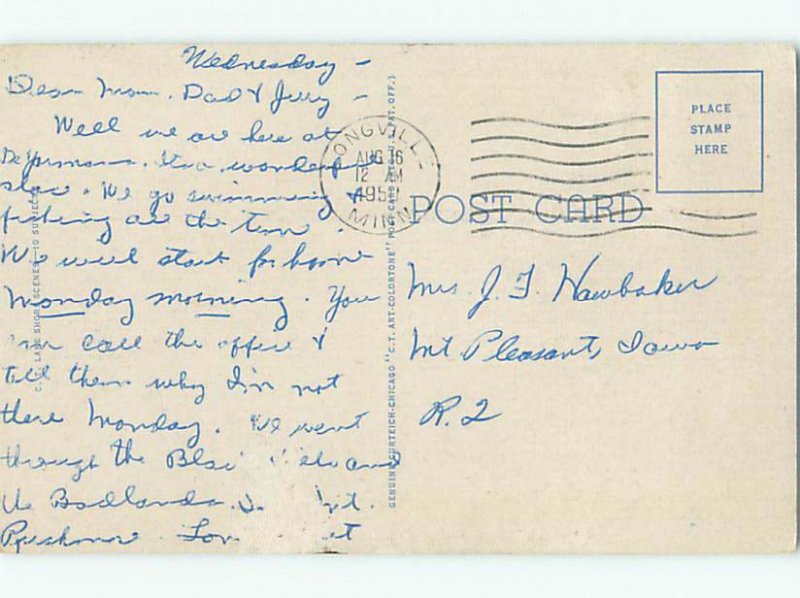 Wednesday -
Dear Mom, Dad & Jerry -
Well we are here at
It's a wonderful
place. We go swimming &
fishing all the time.
We will start for home
Monday morning. You
can call the office &
tell them why I'm not
there Monday. We went
through the Black Hills and
the Badlands. &
Rushmore. Love
LONGVILLE
AUG 16
12 AM
MINN
PLACE
STAMP
HERE
POST CARD
Mrs. J. F. Hawbaker
Mt Pleasant, Iowa
R. 2
GENUINE CURTEICH-CHICAGO "C.T. ART-COLORTONE" POST CARD (REG. U.S. PAT. OFF.)
LAKE SHORE SCENES—10 SUBJECTS